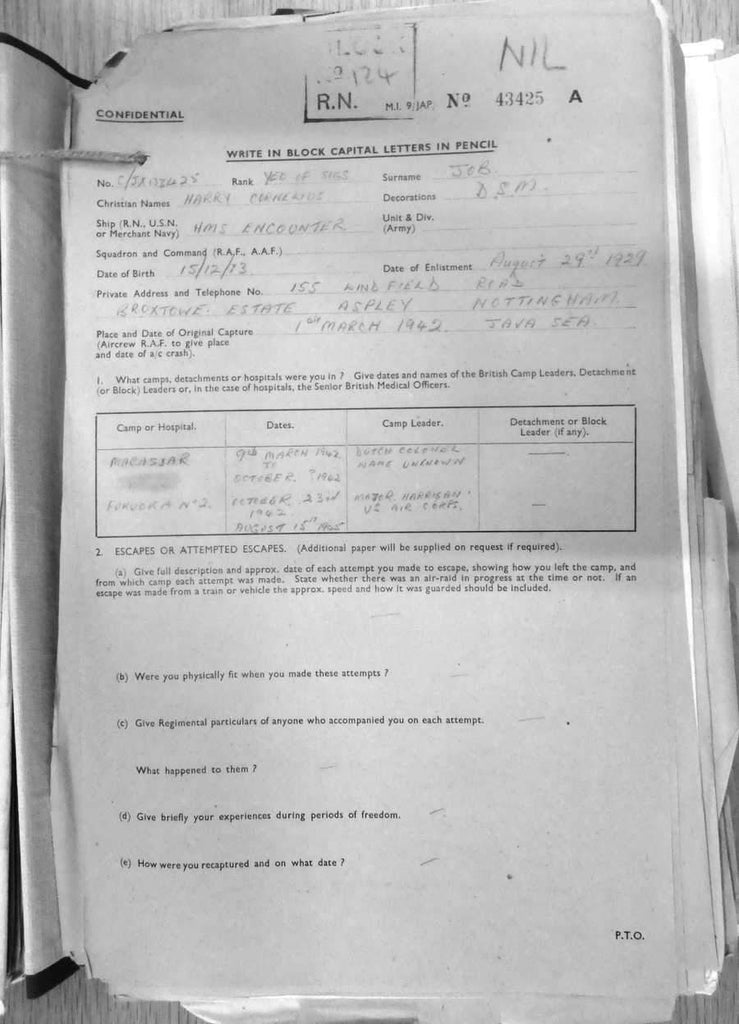 BLOCK
Nº 124
NIL
R.N. M.I. 9/JAP. Nº 43425 A
CONFIDENTIAL
WRITE IN BLOCK CAPITAL LETTERS IN PENCIL
No. Rank YEO OF SIGS Surname JOB
Christian Names HARRY CORNELIUS Decorations D.S.M.
Ship (R.N., U.S.N. or Merchant Navy) HMS ENCOUNTER Unit & Div. (Army)
Squadron and Command (R.A.F., A.A.F.)
Date of Birth 15/12/13 Date of Enlistment August 29th 1929
Private Address and Telephone No. 155 WINDFIELD ROAD
BROXTOWE ESTATE ASPLEY NOTTINGHAM.
Place and Date of Original Capture 1st MARCH 1942 JAVA SEA.
(Aircrew R.A.F. to give place
and date of a/c crash).
1. What camps, detachments or hospitals were you in ? Give dates and names of the British Camp Leaders, Detachment
(or Block) Leaders or, in the case of hospitals, the Senior British Medical Officers.
Camp or Hospital. Dates. Camp Leader. Detachment or Block Leader (if any).
MACASSAR 9th MARCH 1942 DUTCH COLONEL —
TO NAME UNKNOWN
OCTOBER ? 1942
FUKUOKA Nº2. OCTOBER 23rd MAJOR HARRIGAN —
1942 US AIR CORPS.
AUGUST 15th 1945
2. ESCAPES OR ATTEMPTED ESCAPES. (Additional paper will be supplied on request if required).
(a) Give full description and approx. date of each attempt you made to escape, showing how you left the camp, and
from which camp each attempt was made. State whether there was an air-raid in progress at the time or not. If an
escape was made from a train or vehicle the approx. speed and how it was guarded should be included.
—
(b) Were you physically fit when you made these attempts ? —
(c) Give Regimental particulars of anyone who accompanied you on each attempt. —
What happened to them ? —
(d) Give briefly your experiences during periods of freedom. —
(e) How were you recaptured and on what date ? —
P.T.O.